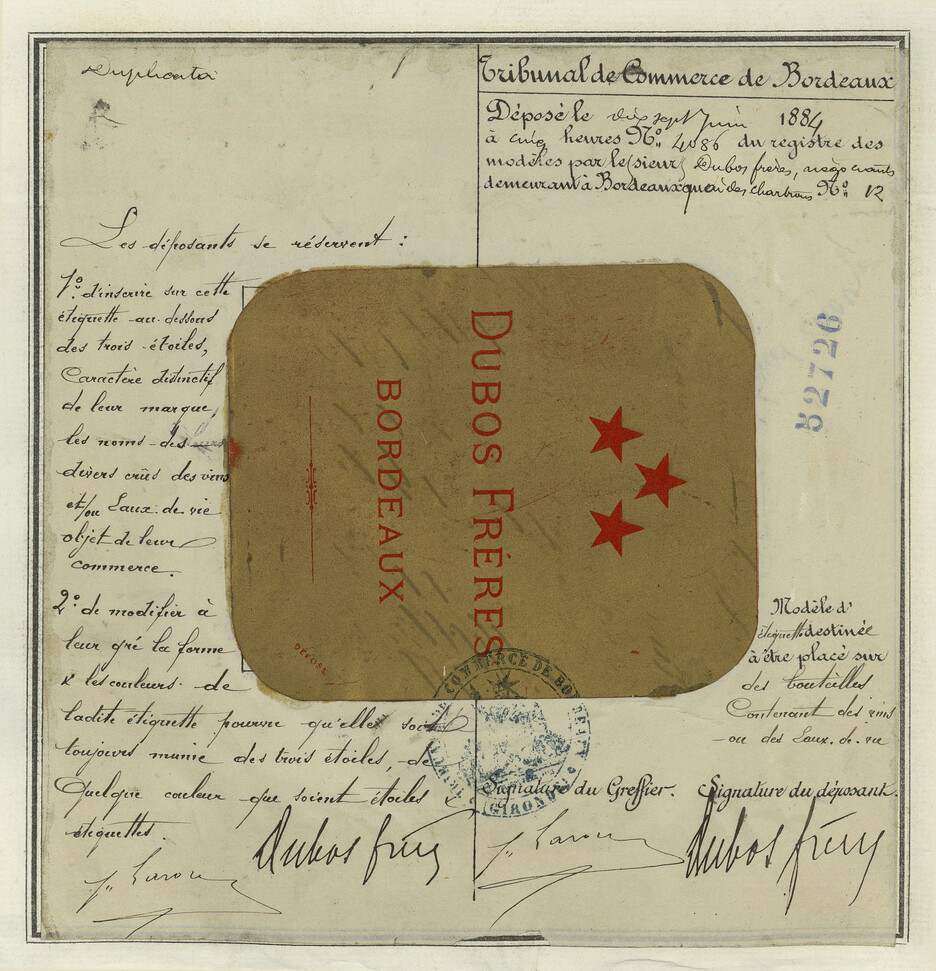 Duplicata
Tribunal de Commerce de Bordeaux
Déposé le dix sept Juin 1884
à cinq heures No. 4086 du registre des
modèles par le (sieur) Dubos frères, négociants
demeurant à Bordeaux quai des chartrons No. 12
Les déposants se réservent :
1o. d'inscrire sur cette
étiquette au-dessous
des trois étoiles,
Caractère distinctif
de leur marque,
les noms des
divers crûs des vins
et/ou Eaux-de-vie
objet de leur
commerce.
2o. de modifier à
leur gré la forme
& les couleurs de
ladite étiquette pourvu qu'elle soit
toujours munie des trois étoiles, de
Quelque couleur que soient étoiles &
étiquettes.
DUBOS FRÈRES
BORDEAUX
DÉPOSÉ
52726
Modèle d'
étiquette destinée
à être placé sur
des bouteilles
Contenant des vins
ou des Eaux-de-vie
COMMERCE DE BORDEAUX
GIRONDE
Signature du Greffier. Signature du déposant.
Dubos frères
Dubos frères